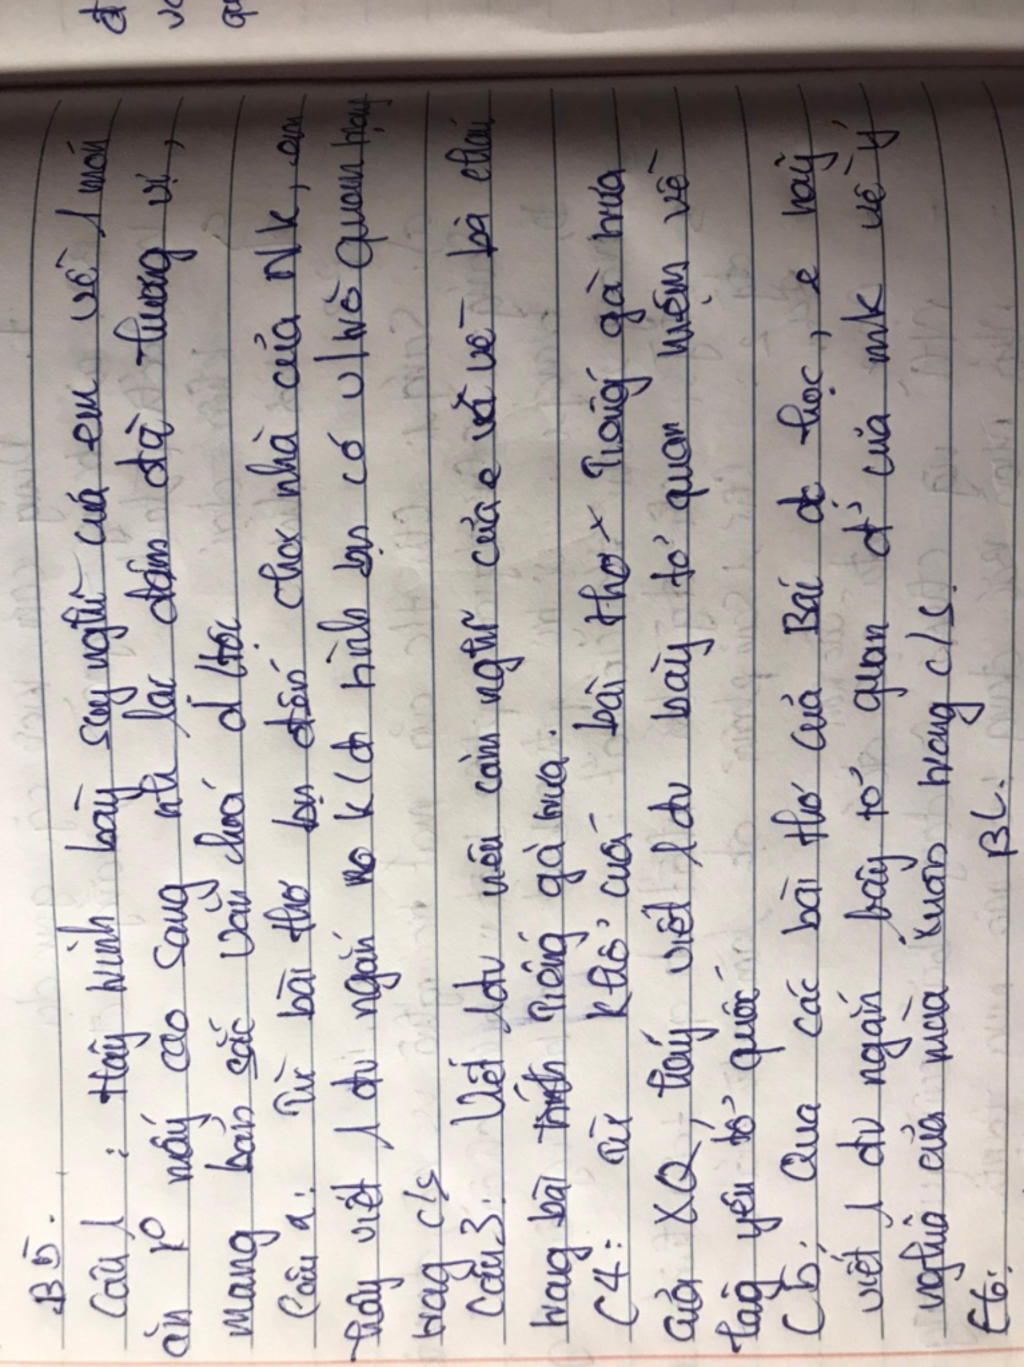 B5:
Câu 1: Hãy trình bày suy nghĩ của em về 1 món
ăn k0 mấy cao sang nh lại đậm đà hương vị,
mang bản sắc văn hoá d tộc
Câu 2: Từ bài thơ bạn đến chơi nhà của NK, em
hãy viết 1 đv ngắn no k/đ tình bạn có v/trò quan trọng
trong c/s
Câu 3: Viết 1 đv nêu cảm nghĩ của e về về bà cháu
trong bài Tiếng gà trưa.
C4: Từ khổ cuối bài thơ Tiếng gà trưa
của XQ, hãy viết 1 đv bày tỏ quan niệm về
lòng yêu tổ quốc
C5: Qua các bài thơ của Bác đc học, e hãy
viết 1 đv ngắn bày tỏ quan đ' của mk về ý
nghĩa của mùa xuân trong c/s.
C6: BL.